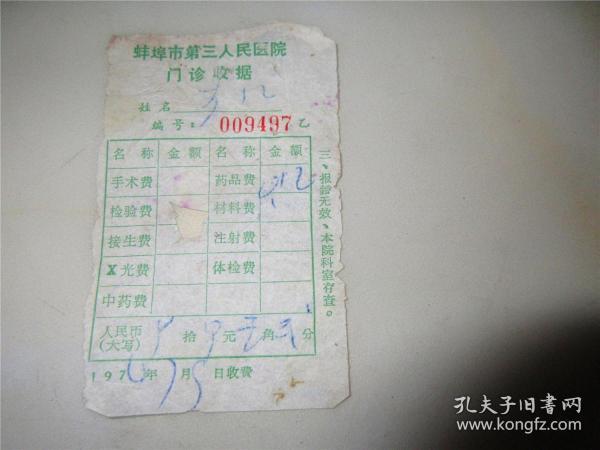 蚌埠市第三人民医院
门诊收据
姓名
编号: 009497 乙
名称 金额 名称 金额
手术费 药品费
检验费 材料费
接生费 注射费
X光费 体检费
中药费
人民币(大写) 拾 元 角 分
197 年 月 日收费
三、报销无效、本院科室存查。
孔夫子旧书网
www.kongfz.com